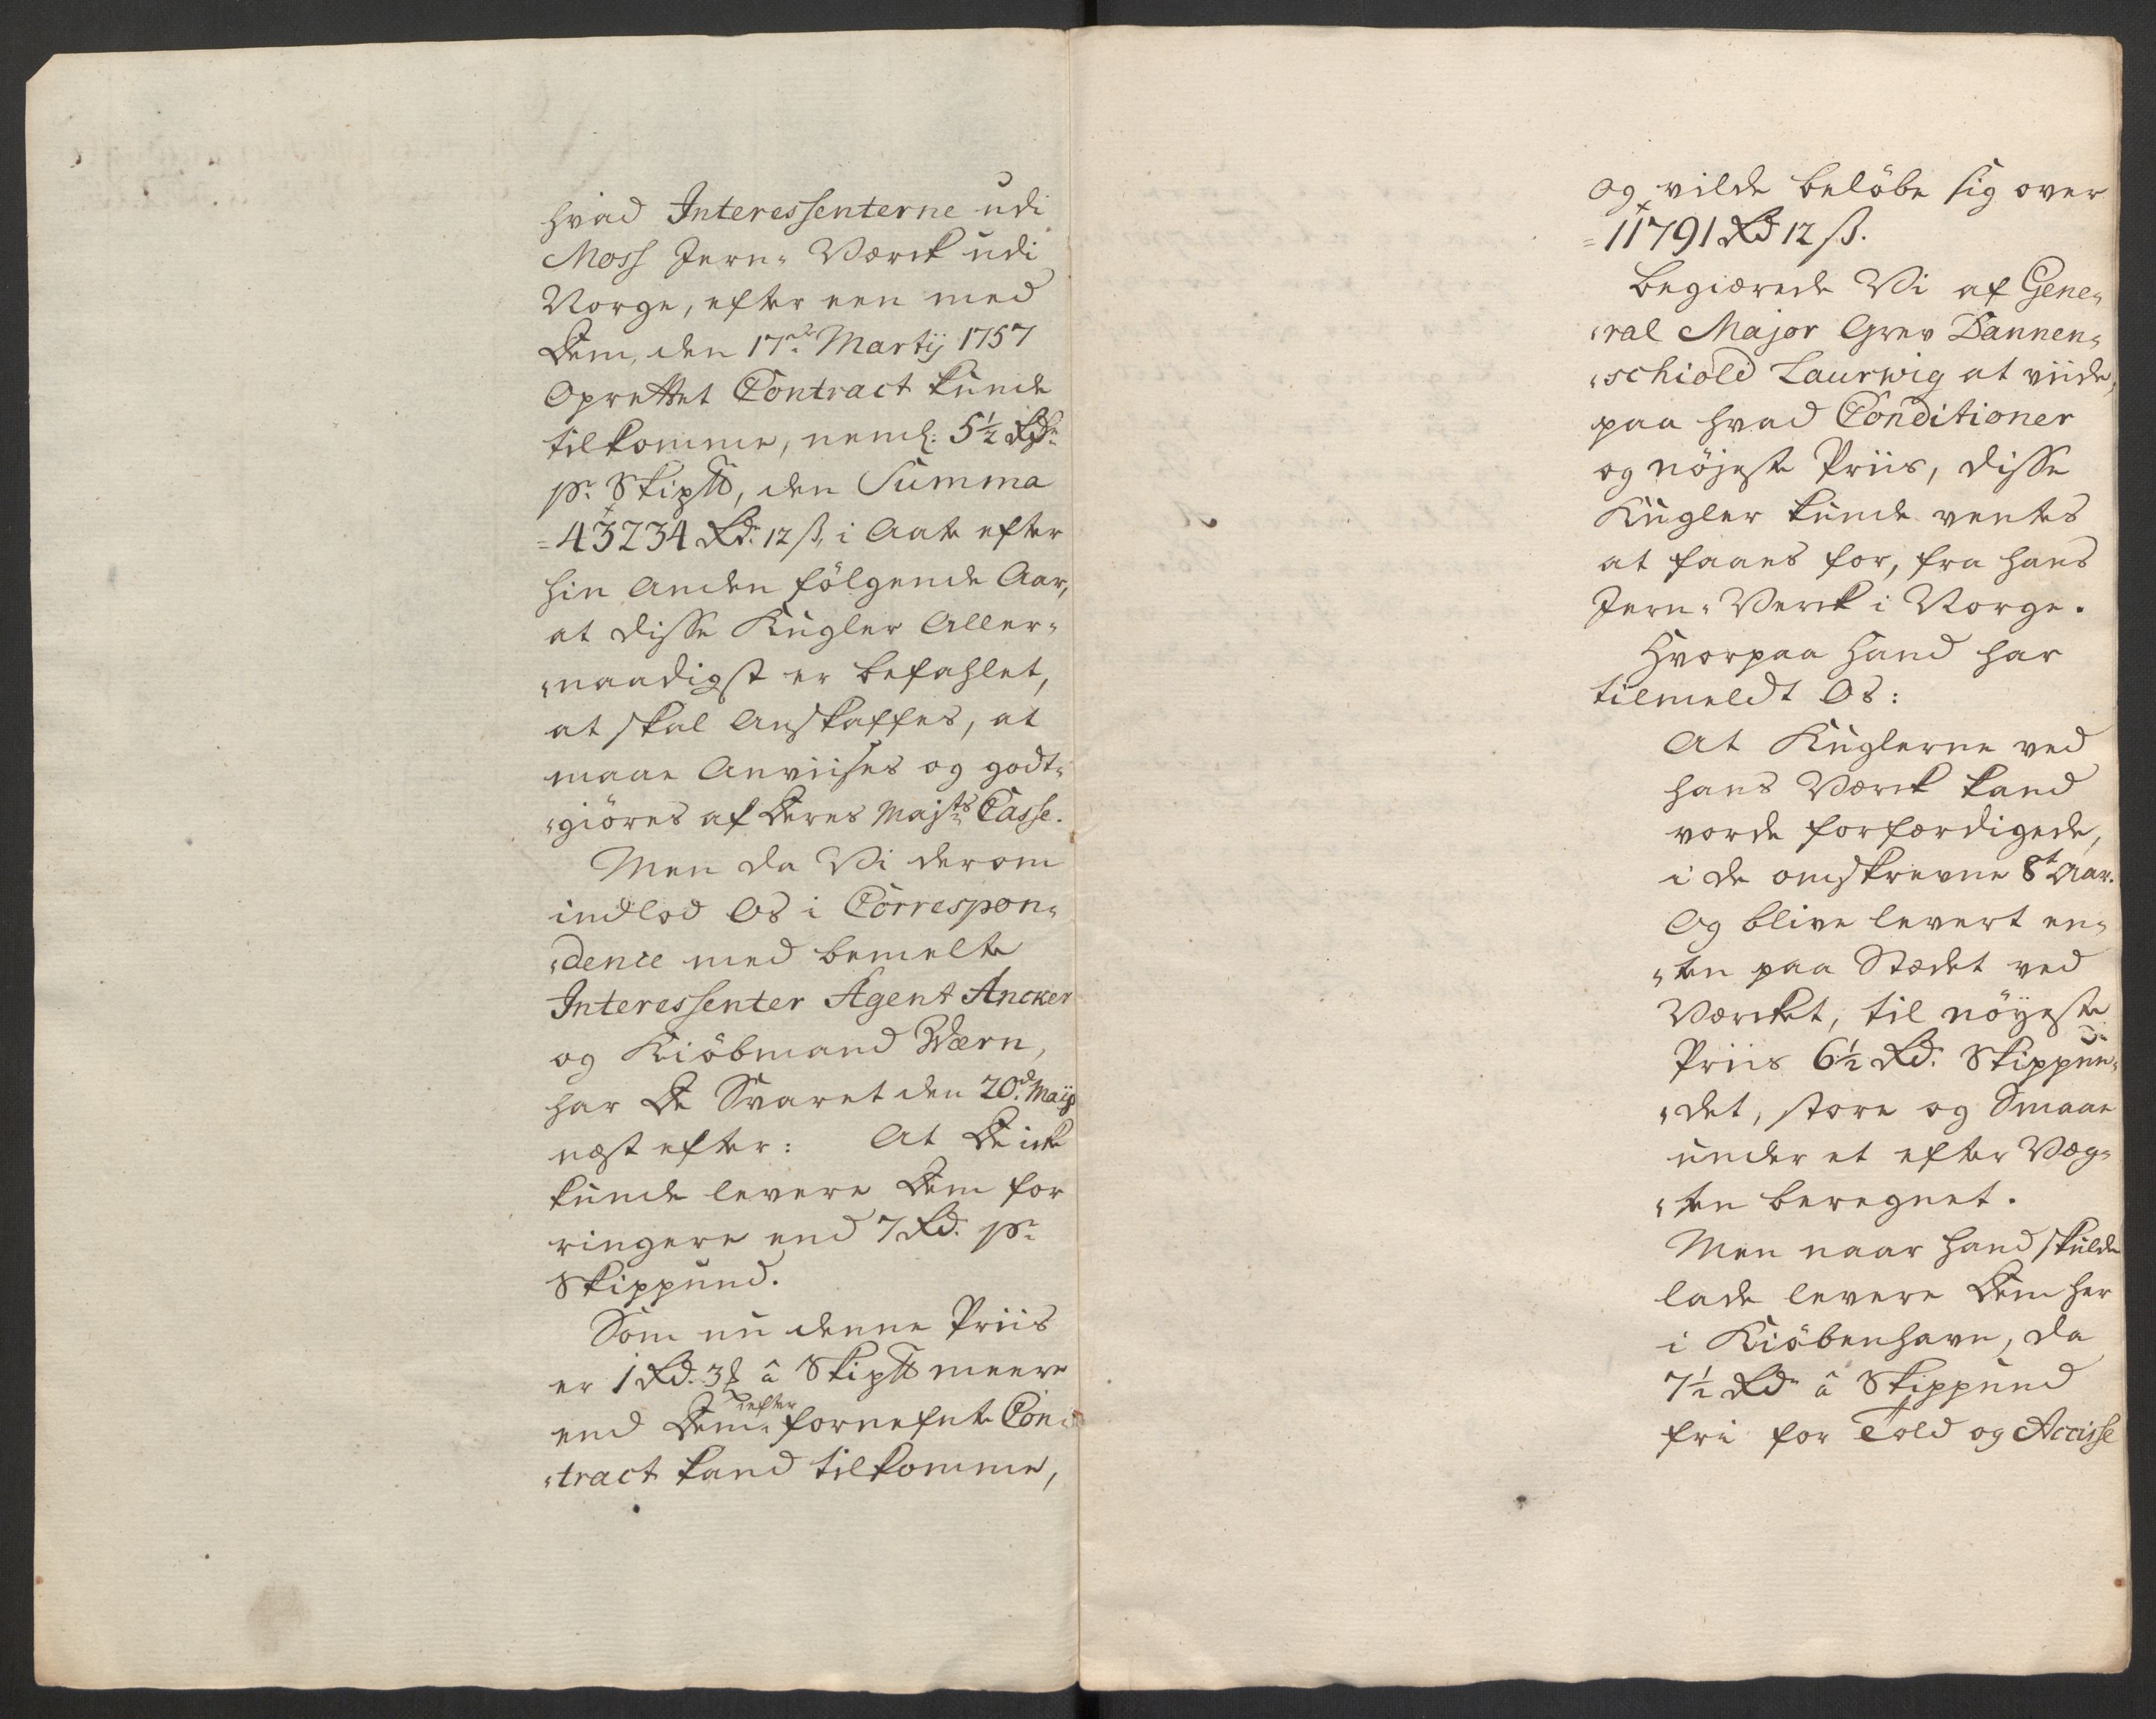 hvad Interessenterne udi
Moss Jern- Værck udi
Norge, efter een med
Dem, den 17de Martij 1757
Oprettet Contract kunde
tilkomme, neml: 5½ Rdr
pr Skip℔, den Summa
=43234 Rd. 12 ß, i Aate efter
hin anden fölgende Aar,
at disse Kugler Aller-
-naadigst er befahlet,
at skal Anskaffes, at
maae Anviises og godt-
-giöres af Deres Majts Casse.
Men da Vi derom
indlod Os i Correspon-
-dence med bemelte
Interessenter Agent Ancker
og Kiöbmand Wærn,
har De Svaret den 20d Maij
næst efter: At De icke
kunde levere Dem for
ringere end 7 Rd. pr
Skippund.
Som nu denne Priis
er 1 Rd. 3 ℳ â Skip℔ meere
end Dem efter fornefnte Con-
-tract kand tilkomme,
og vilde belöbe sig over
=11791 Rd 12 ß.
begiærede Vi af Gene-
-ral Major Grev Dannen-
-schiold Laurwig at viide,
paa hvad Conditioner
og nöjeste Priis, disse
Kugler kunde ventes
at faaes for, fra hans
Jern-Verck i Norge.
Hvorpaa Hand har
tilmeldt Os:
At Kuglerne ved
hans Værck kand
vorde forfærdigede,
i de omskrevne 8t Aar.
Og blive levert en-
-ten paa Stædet ved
Værcket, til nöyeste
Priis 6½ Rd. Skippun-
-det, store og Smaae
under et efter Væg-
-ten beregnet.
Men naar Hand skulde
lade levere Dem her
i Kiöbenhavn, da
7½ Rdr â Skippund
fri for Told og Accisse